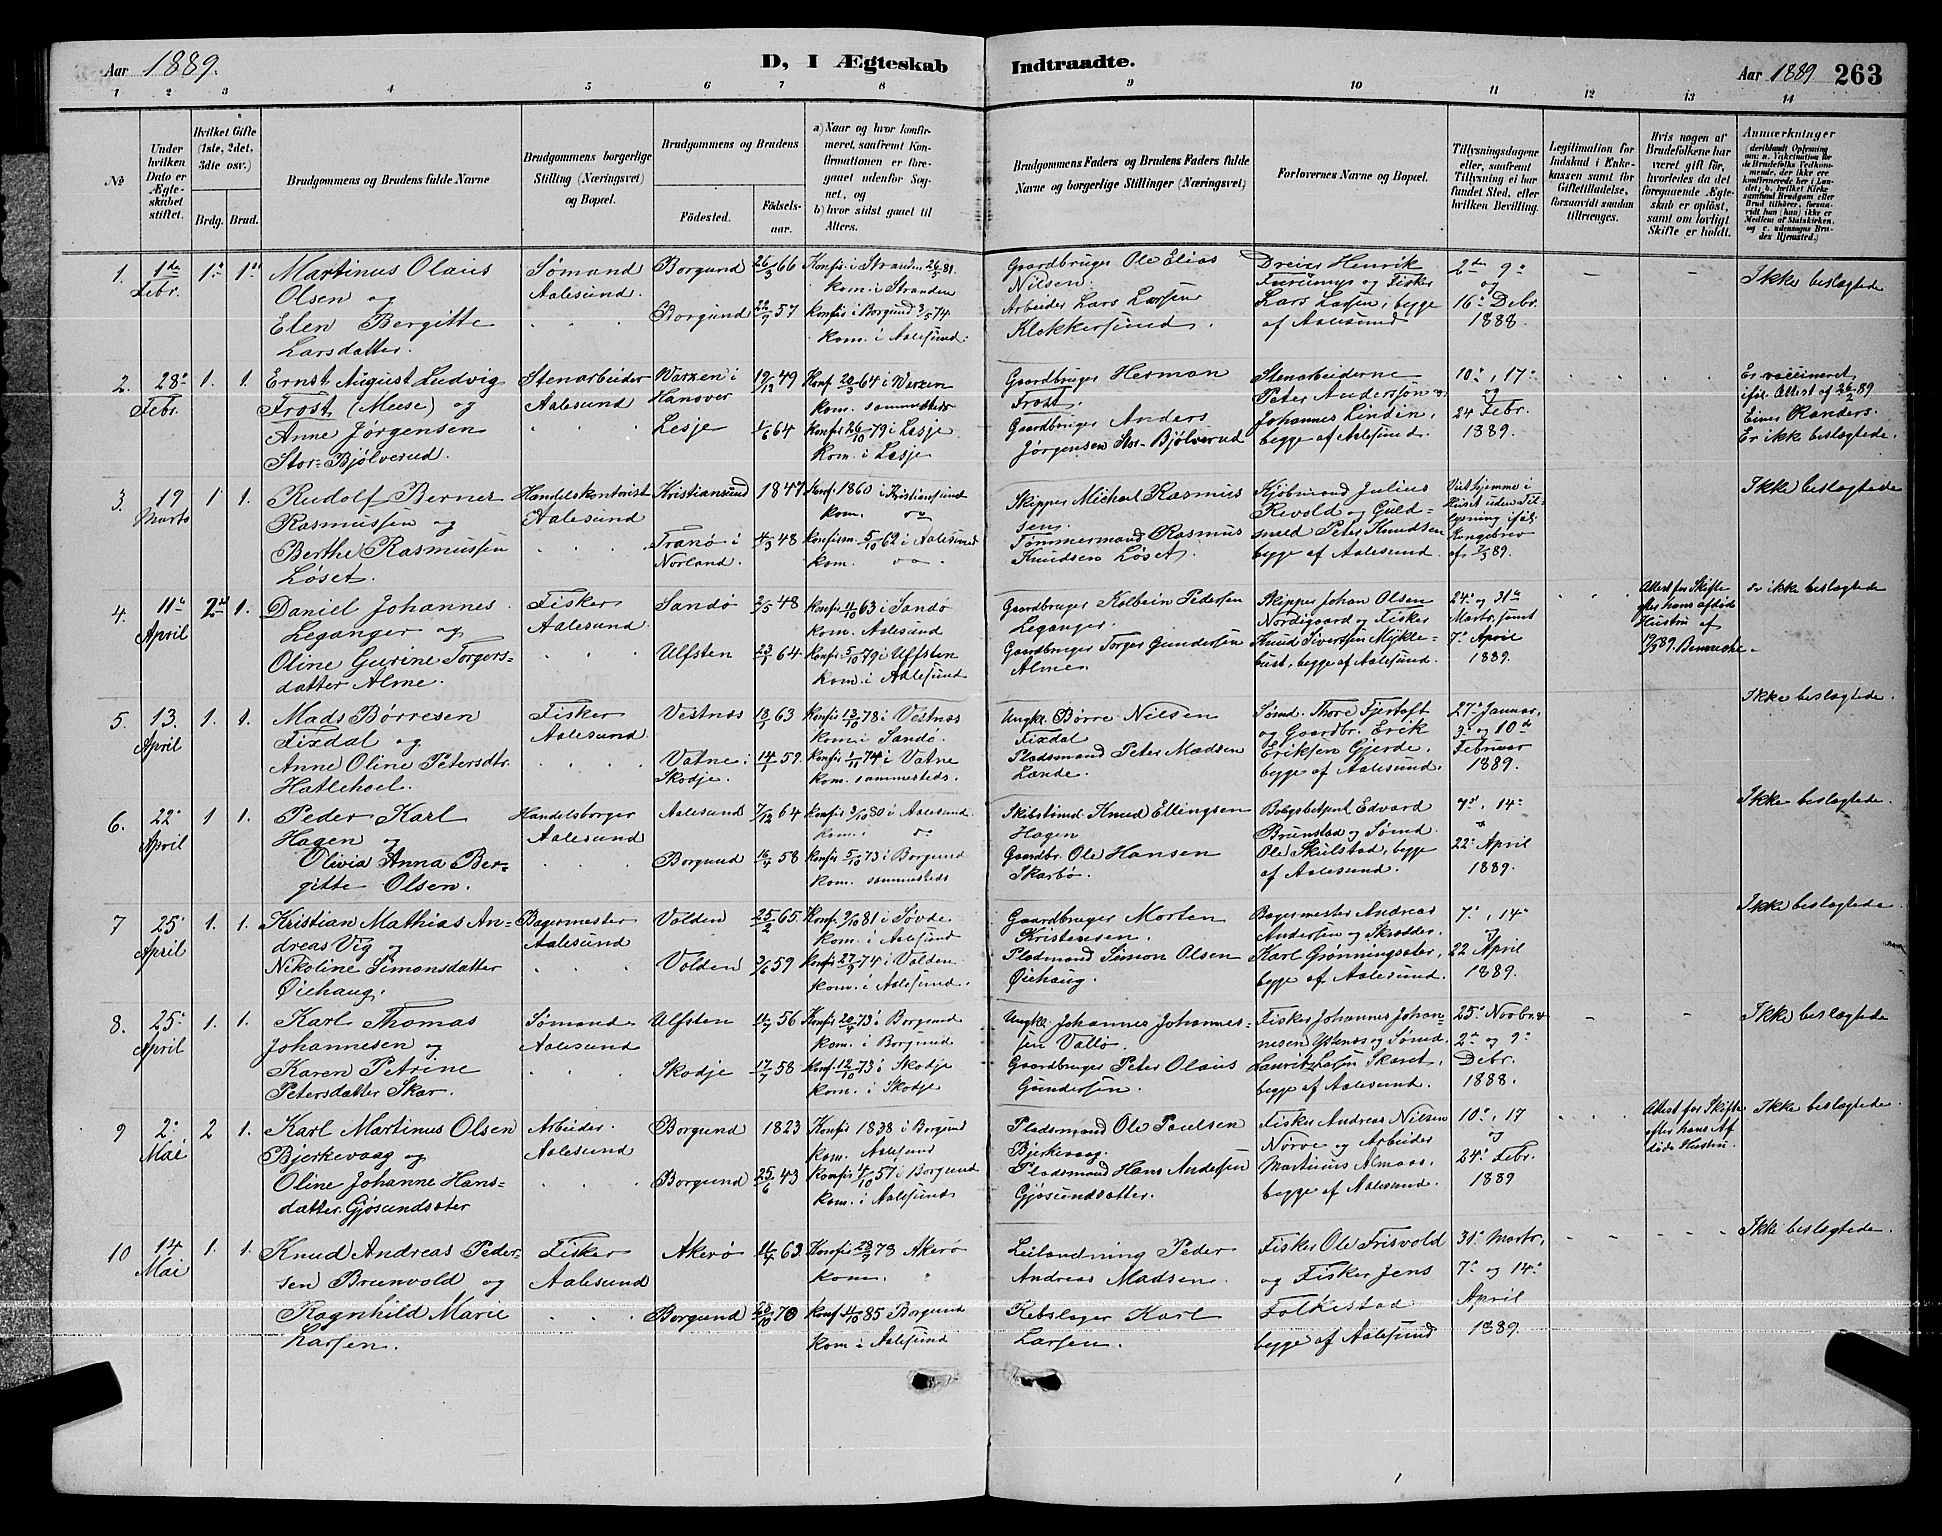 Aar 1889.
D, I Ægteskab Indtraadte.
Aar 1889 263
1 2 3 4 5 6 7 8 9 10 11 12 13 14
No
Under hvilken Dato er Ægteskabet stiftet.
Hvilket Gifte (1ste, 2det, 3die osv.)
Brdg. Brud.
Brudgommens og Brudens fulde Navne
Brudgommens borgerlige Stilling (Næringsvei) og Bopæl.
Brudgommens og Brudens
Födested.
Födselsaar.
a) Naar og hvor konfirmeret, saafremt Konfirmationen er foregaaet udenfor Sognet, og
b) hvor sidst gaaet til Alters.
Brudgommens Faders og Brudens Faders fulde Navne og borgerlige Stillinger (Næringsvei)
Forlovernes Navne og Bopæl.
Tillysningsdagene eller, saafremt Tillysning ei har fundet Sted, efter hvilken Bevilling.
Legitimation for Indskud i Enkekassen samt for Giftetilladelse, forsaavidt saadan tiltrænges.
Hvis nogen af Brudefolkene har været gift för, hvorledes da det foregaaende Ægteskab er oplöst, samt om lovligt Skifte er holdt.
Anmærkninger
1. 1ste Febr. 1. 1.
Martinus Olaus
Olsen og
Elen Bergitte
Larsdatter.
Sømand
Aalesund.
Borgund 26/3 66
Borgund 22/9 57
Konfis. i Stranden 26/5 81
kom. i Stranden
Konfis i Borgund 3/5 74
kom. i Aalesund.
Gaardbruger Ole Elias
Nilsen.
Arbeider Lars Larsen
Klokkersund.
Dreier Henrik
Furumyr og Fisker
Lars Larsen, begge
af Aalesund
2den 9de
og
16de Debr.
1888.
Ikke beslægtede
2. 28de Febr. 1. 1.
Ernst August Ludvig
Frost (Meese) og
Anne Jørgensen
Stor-Bjölverud.
Stenarbeider
Aalesund
Warzen i
Hanover 19/12 49
Lesje 1/6 64
Konf. 20/3 64 i Warzen
kom. sammesteds
Konfis 26/10 79 i Lesje
Kom. i Lesje
Gaardbruger Herman
Frost.
Gaardbruger Anders
Jørgensen Stor-Bjölverud
Stenarbeiderne
Peter Anderssön og
Johannes Lindin,
begge af Aalesund.
10de, 17de
og
24 Febr.
1889.
Er vaccineret
ifør. Attest af 26/2 89
Einer Randers.
Er ikke beslægtede.
3. 19 Marts 1 1.
Rudolf Bernes
Rasmussen og
Berthe Rasmussen
Løset.
Handelskontorist
Aalesund
Kristiansund 1847
Tranö i
Norland. 4/3 48
Konf. 1860 i Kristiansund
kom. do
Konfirm. 5/10 62 i Aalesund
kom. do.
Skipper Michael Rasmus
sen.
Tømmermand Rasmus
Knudsen Løset.
Kjöbmand Julius
Revold og Guld-
smed Peter Knudsen
begge af Aalesund.
Viet hjemme i
Huset uden Til
lysning ifølg.
Kongebrev
af 7/3 89.
Ikke beslægtede
4. 11te April 2det 1.
Daniel Johannes
Leganger og
Oline Gurine Torgers-
datter Alme.
Fisker
Aalesund.
Sandø 2/5 48
Ulfsten 23/1 64
Konfis 11/10 63 i Sandø
kom. Aalesund
Konfis 5/10 79 i Ulfsten
kom. i Aalesund
Gaardbruger Kolbein Pedersen
Leganger.
Gaardbruger Torger Gundersen
Alme.
Skipper Johan Olsen
Nordigaard og Fisker
Knud Sivertsen Mykle-
bust, begge af Aalesund.
24de og 31te
Marts, samt
7de April
1889.
Attest for Skifte
efter hans afdøde
Hustru af
89.
er ikke beslægtede
5. 13. April 1. 1.
Mads Børresen
Fixdal og
Anne Oline Petersdtr.
Hatlehoel.
Fisker
Aalesund.
Vestnæs 18/1 63
Vatne i
Skodje. 14/1 59.
Konfis 13/10 78 i Vestnæs
kom. i Sandø.
Konfis 1/11 74 i Vatne
kom. sammesteds.
Ungkl. Børre Nilsen
Fixdal
Pladsmand Peter Madsen
Lande.
Sømd. Thore Fjertoft
og Gaardbr. Erik
Eriksen Gjerde,
begge af Aalesund.
27de Januar,
3de og 10de
Februar
1889.
Ikke beslægtede.
6. 22de April 1 1.
Peder Karl
Hagen og
Olivia Anna Ber-
gitte Olsen.
Handelsborger
Aalesund
Aalesund 7/12 64
Borgund 16/4 58
Konfis 3/10 80 i Aalesund.
kom. i do
Konfis 5/10 73 i Borgund
kom. sammesteds
Skibstmd. Knud Ellingsen
Hagen
Gaardbr. Ole Hansen
Skarbö.
Bogsbetjent Edvard
Brunstad og Sømd.
Ole Skulstad, begge
af Aalesund.
7de, 14de
22de April
1889.
Ikke beslægtede.
7 25de April 1. 1.
Kristian Mathias An-
dreas Vig og
Nikoline Simonsdatter
Øiehaug.
Bagermester
Aalesund
Volden 25/2 65
Volden 3/6 59
Konf. 9/10 81 i Søvde
kom. i Aalesund
Konfis 27/9 74 i Volden
kom. i Aalesund.
Gaardbruger Morten
Kristensen.
Pladsmand Simon Olsen
Øiehaug.
Bagermester Andreas
Andersen og Skrædder
Karl Grönningsæter,
begge af Aalesund.
7de, 14de
og
22 April
1889.
Ikke beslægtede.
8. 25de April 1. 1.
Karl Thomas
Johannesen og
Karen Petrine
Petersdatter Skar.
Sømand
Aalesund
Ulfsten 11/7 56
Skodje 17/7 58
Konfis 20/4 73 i Borgund
kom. i Borgund
Konf. 12/10 73 i Skodje
kom. i Skodje
Ungkl. Johannes Johannes-
sen Vallø.
Gaardbruger Peter Olaus
Gundersen.
Fisker Johannes Johan-
nesen Ystenes og Sømd.
Laurits Larsen Skaret,
begge af Aalesund.
25de Novbr.
2den og 9de
Debr.
1888.
Ikke beslægtede
9 2den Mai 2 1.
Karl Martinus Olsen
Bjerkevaag og
Oline Johanne Hans-
datter Gjøsundsæter
Arbeider
Aalesund
Borgund 1823
Borgund 25/6 43
Konfis 1838 i Borgund
kom. Aalesund
Konfis 4/10 57 i Borgund
kom. i Aalesund
Pladsmand Ole Poulsen
Bjerkevaag.
Pladsmand Hans Andersen
Gjøsundsætter.
Fisker Andreas Nilsen
Nørve og Arbeider
Martinus Almaas,
begge af Aalesund.
10de, 17
og
24de Febr.
1889
Attest for Skifte
efter hans Af
døde Hustru.
Ikke beslægtede.
10 14 Mai 1. 1.
Knud Andreas Peder-
sen Brunvold og
Ragnhild Marie
Larsen.
Fisker
Aalesund
Akerö 11/7 63.
Borgund 23/10 70
Konfis 28/9 78 Akerö
kom. "
Konf. 4/10 85 Borgund
kom i Aalesund
Leilænding Peder
Andreas Madsen.
Rebslager Karl
Larsen.
Fisker Ole Frisvold
og Fisker Jens
Folkestad
begge af Aalesund
31de Marts,
7de og 14de
April
1889.
Ikke beslægtede.